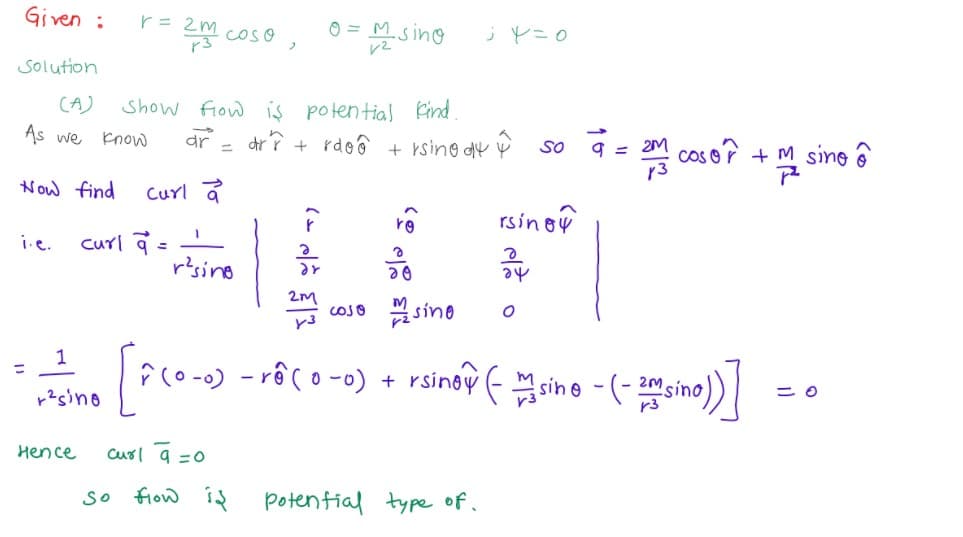 Given : r = 2m/r³ cosθ , θ = M/r² sinθ ; ψ = 0
Solution
(A) Show flow is potential kind.
As we know d⃗r = dr r̂ + rdθ θ̂ + rsinθ dψ ψ̂ so q⃗ = 2M/r³ cosθ r̂ + M/r² sinθ θ̂
Now find curl q⃗
i.e. curl q⃗ = 1/r²sinθ | r̂ rθ̂ rsinθψ̂ |
| ∂/∂r ∂/∂θ ∂/∂ψ |
| 2M/r³ cosθ M/r² sinθ 0 |
= 1/r²sinθ [ r̂ (0-0) - rθ̂ (0-0) + rsinθψ̂ (- M/r³ sinθ - (- 2M/r³ sinθ)) ] = 0
Hence curl q̅ = 0
So flow is potential type of.